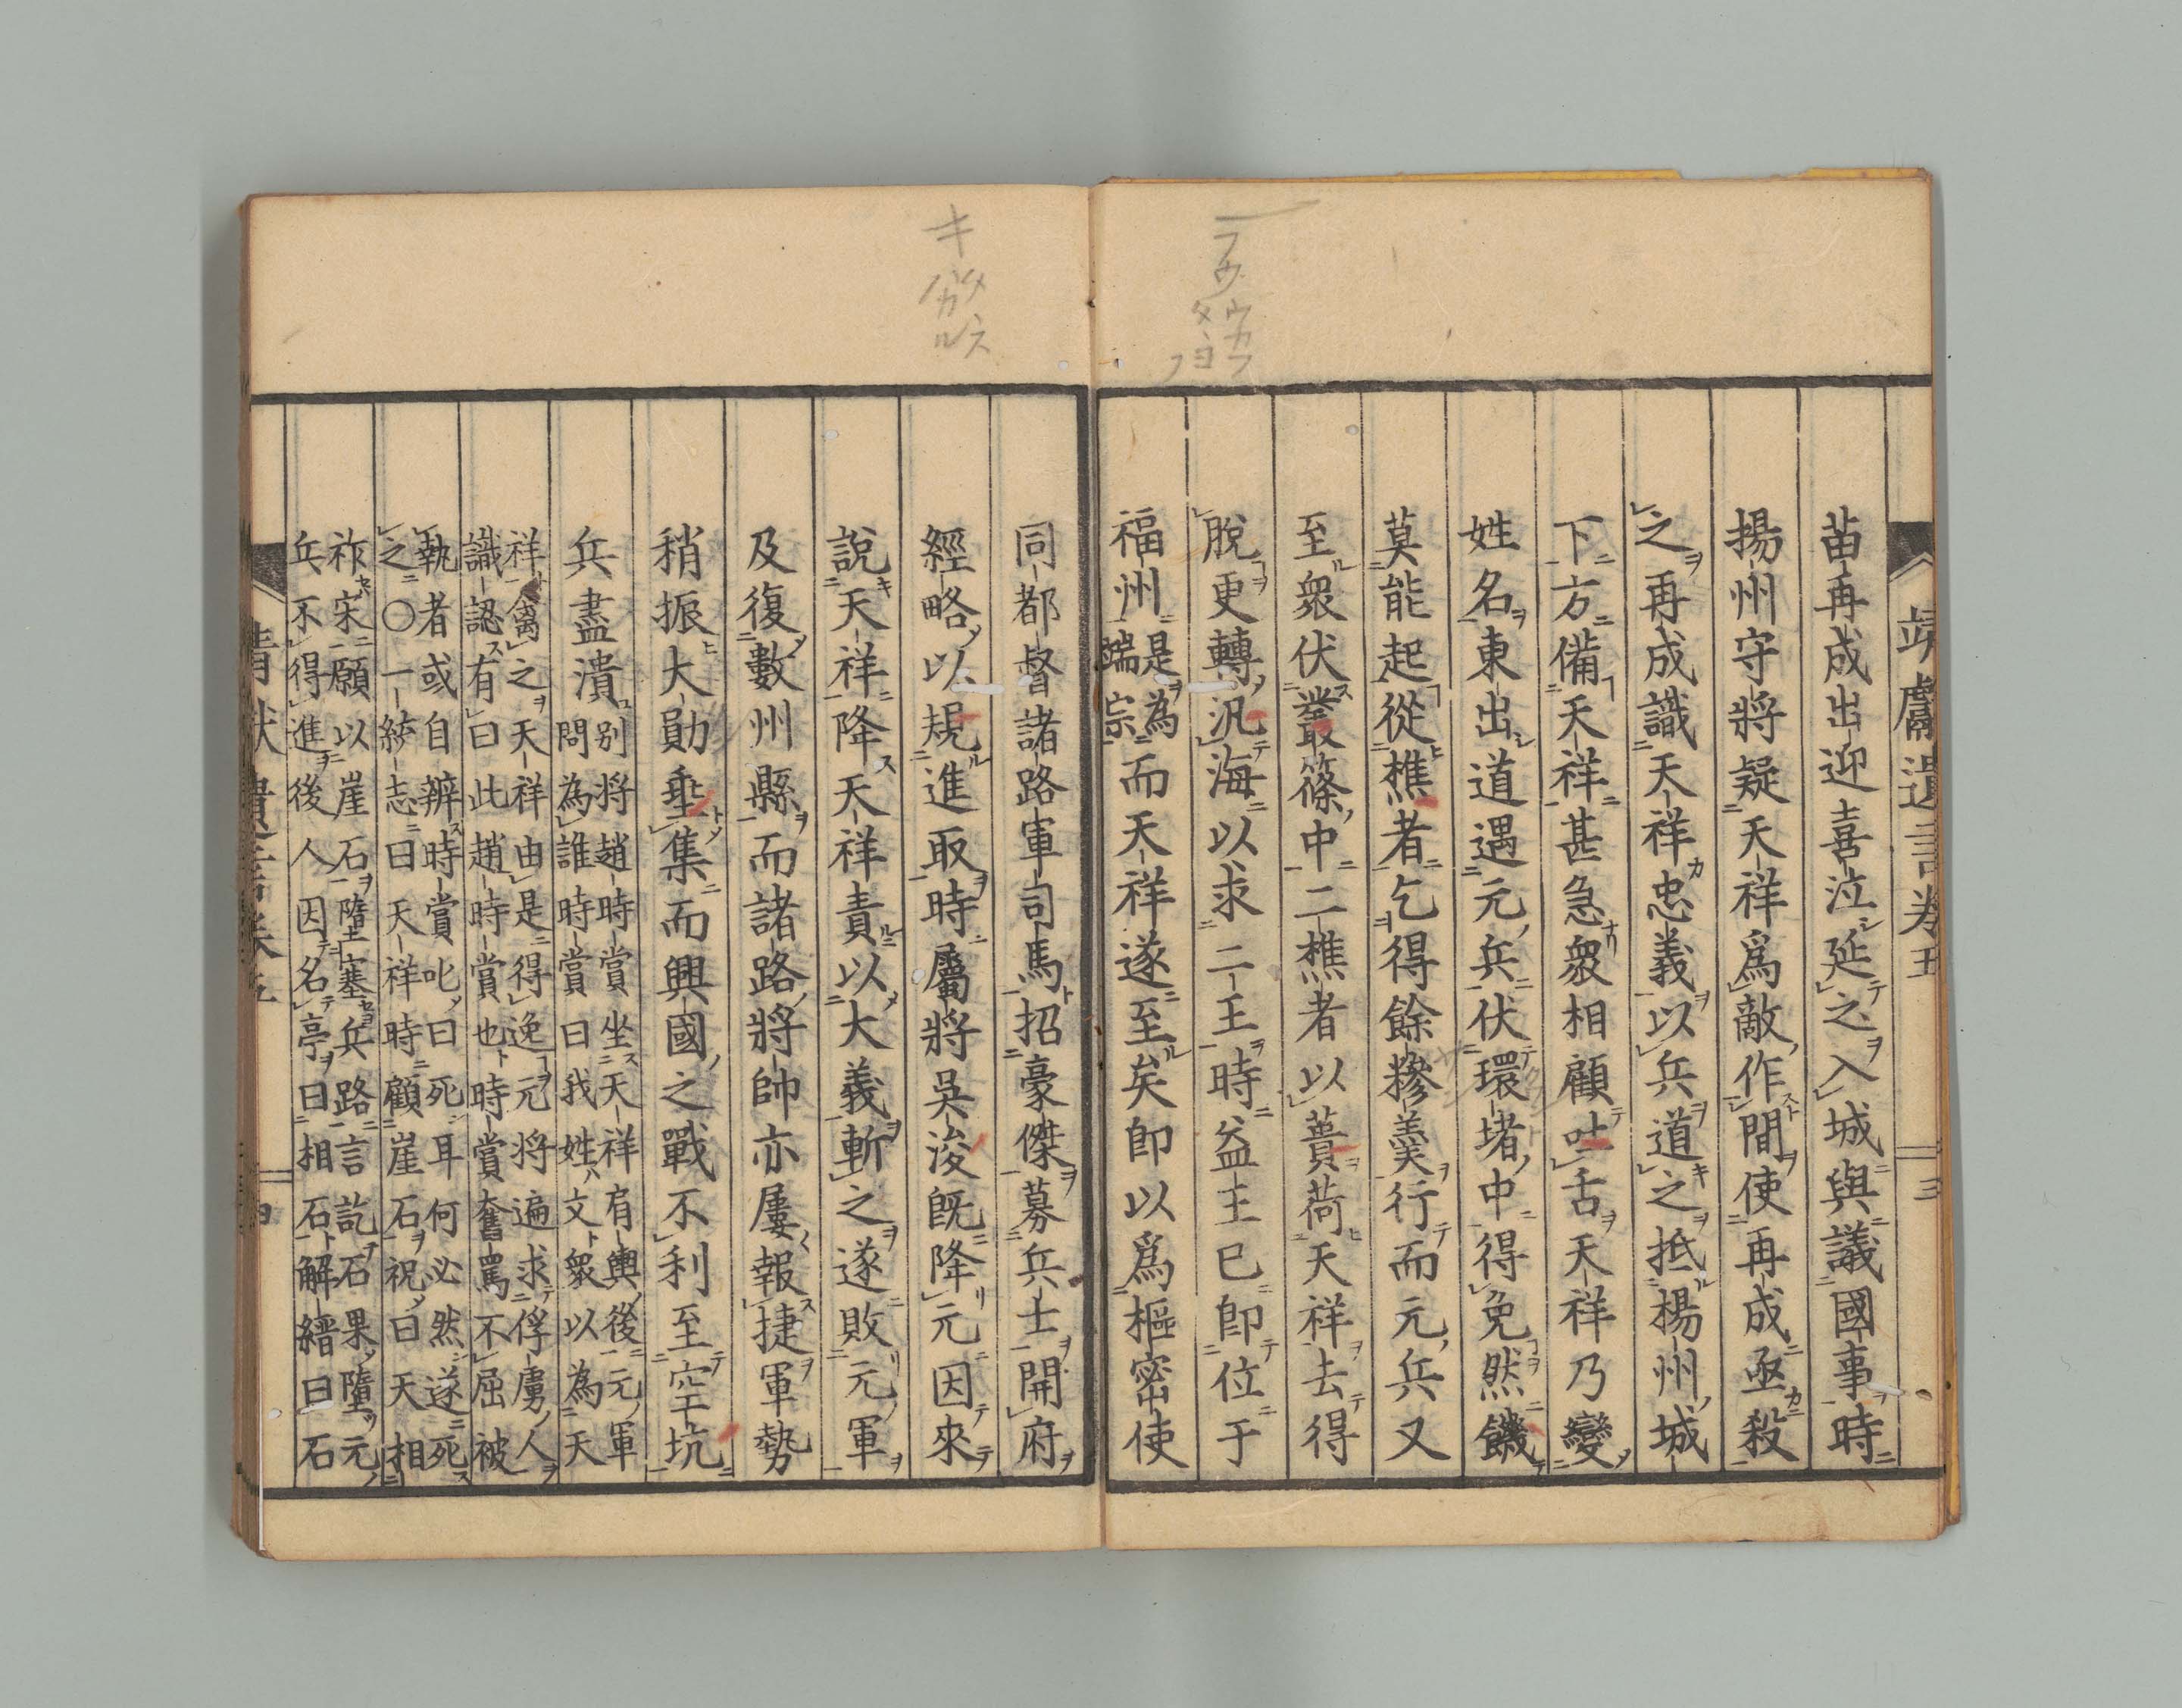 靖獻遺言卷五
三
苗再成出迎喜泣延之入城與議國事時
揚州守將疑天祥爲敵作間使再成亟殺
之再成識天祥忠義以兵道之抵楊州城
下方備天祥甚急衆相顧吐舌天祥乃變
姓名東出道遇元兵伏環堵中得免然饑
莫能起從樵者乞得餘糝羹行而元兵又
至衆伏叢篠中二樵者以蕢荷天祥去得
脫更轉汎海以求二王時益王已卽位于
福州是為端宗而天祥遂至矣卽以爲樞密使
同都督諸路軍司馬招豪傑募兵士開府
經略以規進取時屬將吳浚旣降元因來
說天祥降天祥責以大義斬之遂敗元軍
及復數州縣而諸路將帥亦屢報捷軍勢
稍振大勛垂集而興國之戰不利至空坑
兵盡潰別将趙時賞坐天祥肩輿後元軍
問為誰時賞曰我姓文衆以為天
祥禽之天祥由是得逸元将遍求俘虜人
識認有曰此趙時賞也時賞奮罵不屈被
執者或自辨時賞叱曰死耳何必然遂死
之〇一統志曰天祥時顧崖石祝曰天相
祚宋願以崖石墮塞兵路言訖石果墮元
兵不得進後人因名亭曰相石解縉曰石
四